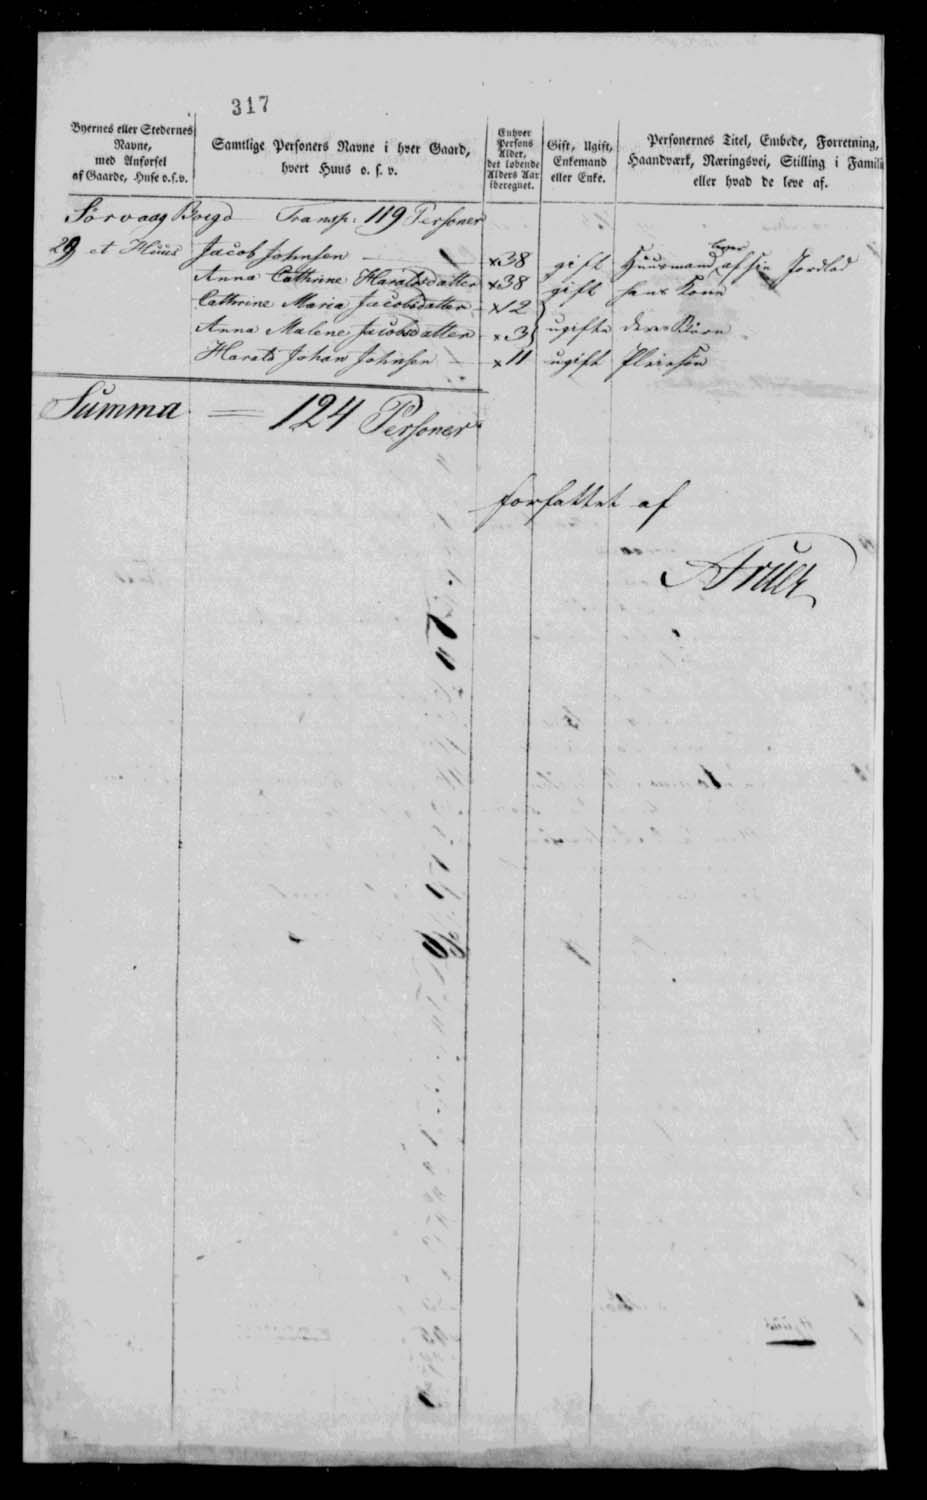 317
Byernes eller Stedernes Navne, med Anførsel af Gaarde, Huse o.s.v.
Samtlige Personers Navne i hver Gaard, hvert Huus o. s. v.
Enhver Persons Alder, det løbende Alders Aar iberegnet.
Gift, Ugift, Enkemand eller Enke.
Personernes Titel, Embede, Forretning, Haandværk, Næringsvei, Stilling i Famili eller hvad de leve af.
Sörvaag Boigd Transp: 119 Personer
29 et Huus Jacob Johnsen x38 gift Huusmand lever af sin Jordlod
Anna Cathrine Haraldsdatter x38 gift hans Kone
Cathrine Maria Jacobsdatter x12
Anna Malene Jacobsdatter x3 ugifte deres Börn
Harald Johan Johnsen x11 ugift Pleiesön
Summa = 124 Personer
forfattet af